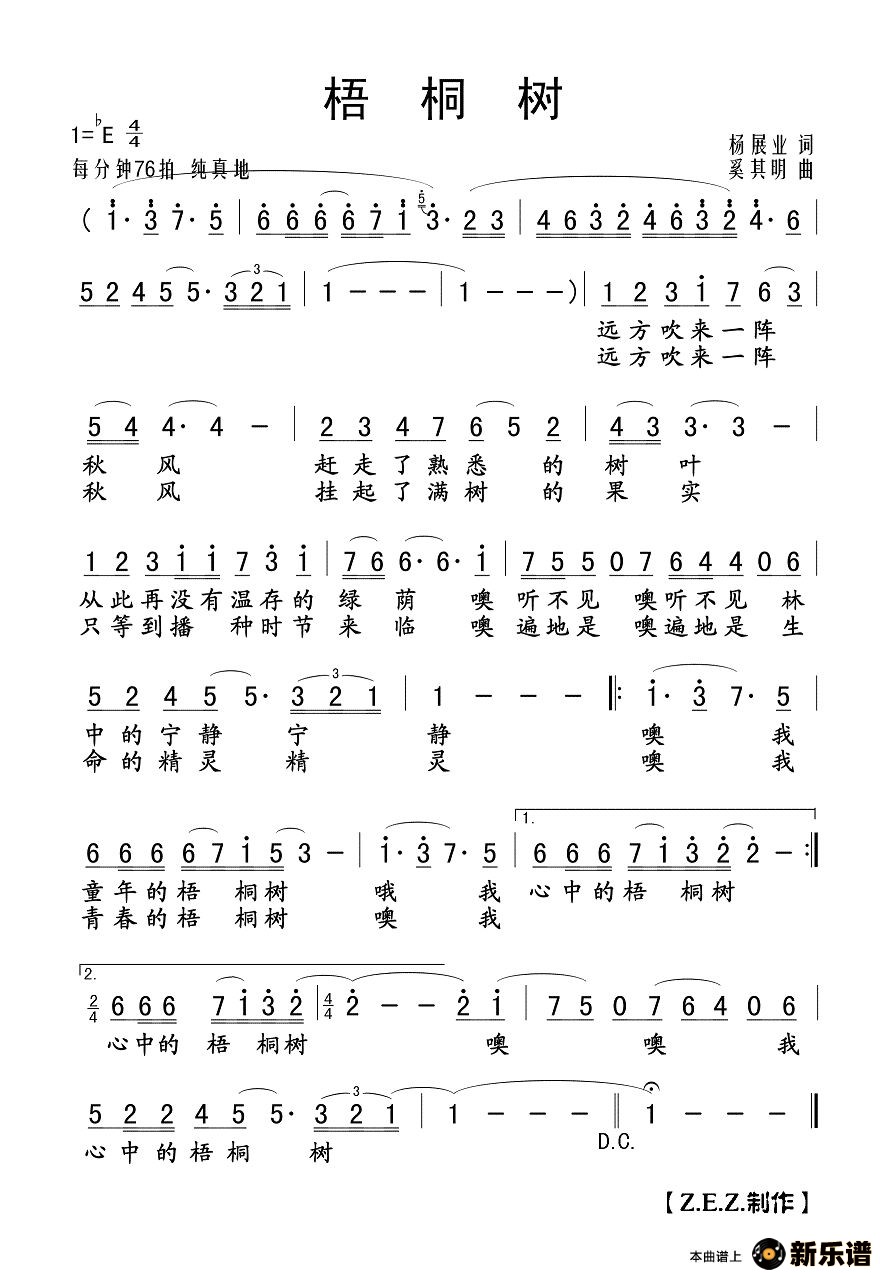 梧 桐 树
1=♭E 4/4
杨展业 词
每分钟76拍 纯真地
奚其明 曲
( 1̇· 3̇ 7· 5 | 6 6 6 6 7 1̇ 5 3· 2 3 | 4 6 3 2 4 6 3 2 4· 6 |
5 2 4 5 5· 3 2 1 | 1 - - - | 1 - - - ) | 1 2 3 1̇ 7 6 3 |
远方吹来一阵
远方吹来一阵
5 4 4· 4 - | 2 3 4 7 6 5 2 | 4 3 3· 3 - |
秋 风 赶走了熟悉 的 树 叶
秋 风 挂起了满树 的 果 实
1 2 3 1̇ 1̇ 7 3̇ 1̇ | 7 6 6· 6· 1̇ | 7 5 5 0 7 6 4 4 0 6 |
从此再没有温存的 绿 荫 噢 听不见 噢听不见 林
只等到播 种时节 来 临 噢 遍地是 噢遍地是 生
5 2 4 5 5· 3 2 1 | 1 - - - ‖: 1̇· 3̇ 7· 5 |
中的宁静 宁 静 噢 我
命的精灵 精 灵 噢 我
1.
6 6 6 6 7 1̇ 5 3 - | 1̇· 3̇ 7· 5 | 6 6 6 7 1̇ 3̇ 2̇ 2̇ - :‖
童年的梧 桐树 哦 我 心中的梧 桐树
青春的梧 桐树 噢 我
2.
2/4 6 6 6 7 1̇ 3̇ 2̇ | 4/4 2̇ - - 2̇ 1̇ | 7 5 0 7 6 4 0 6 |
心中的 梧 桐树 噢 噢 我
5 2 2 4 5 5· 3 2 1 | 1 - - - ‖ 1 - - - ‖
D.C.
心 中 的梧 桐 树
【Z.E.Z.制作】
本曲谱上 新乐谱